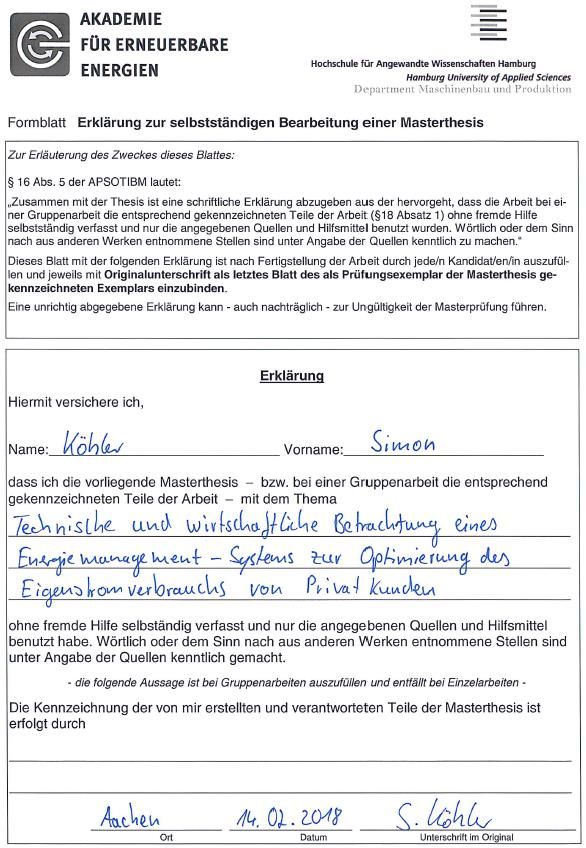 AKADEMIE
FÜR ERNEUERBARE
ENERGIEN
Hochschule für Angewandte Wissenschaften Hamburg
Hamburg University of Applied Sciences
Department Maschinenbau und Produktion
Formblatt Erklärung zur selbstständigen Bearbeitung einer Masterthesis
Zur Erläuterung des Zweckes dieses Blattes:
§ 16 Abs. 5 der APSOTIBM lautet:
„Zusammen mit der Thesis ist eine schriftliche Erklärung abzugeben aus der hervorgeht, dass die Arbeit bei ei-
ner Gruppenarbeit die entsprechend gekennzeichneten Teile der Arbeit (§18 Absatz 1) ohne fremde Hilfe
selbstständig verfasst und nur die angegebenen Quellen und Hilfsmittel benutzt wurden. Wörtlich oder dem Sinn
nach aus anderen Werken entnommene Stellen sind unter Angabe der Quellen kenntlich zu machen."
Dieses Blatt mit der folgenden Erklärung ist nach Fertigstellung der Arbeit durch jede/n Kandidat/en/in auszufül-
len und jeweils mit Originalunterschrift als letztes Blatt des als Prüfungsexemplar der Masterthesis ge-
kennzeichneten Exemplars einzubinden.
Eine unrichtig abgegebene Erklärung kann - auch nachträglich - zur Ungültigkeit der Masterprüfung führen.
Erklärung
Hiermit versichere ich,
Name: Köhler Vorname: Simon
dass ich die vorliegende Masterthesis – bzw. bei einer Gruppenarbeit die entsprechend
gekennzeichneten Teile der Arbeit – mit dem Thema
Technische und wirtschaftliche Betrachtung eines
Energiemanagement - Systems zur Optimierung des
Eigenstromverbrauchs von Privatkunden
ohne fremde Hilfe selbständig verfasst und nur die angegebenen Quellen und Hilfsmittel
benutzt habe. Wörtlich oder dem Sinn nach aus anderen Werken entnommene Stellen sind
unter Angabe der Quellen kenntlich gemacht.
- die folgende Aussage ist bei Gruppenarbeiten auszufüllen und entfällt bei Einzelarbeiten -
Die Kennzeichnung der von mir erstellten und verantworteten Teile der Masterthesis ist
erfolgt durch
Aachen 14.02.2018 S. Köhler
Ort Datum Unterschrift im Original